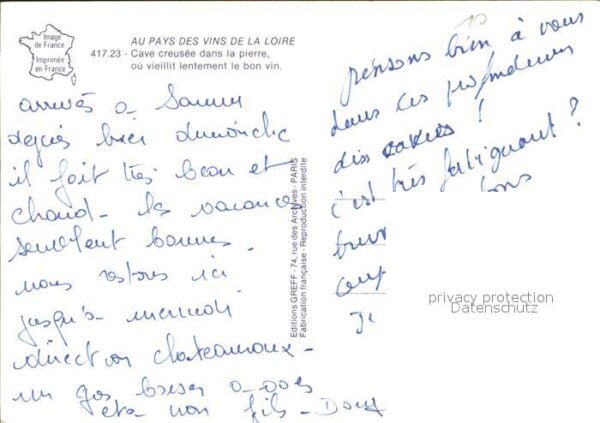 Image
de France
Imprimée
en France
AU PAYS DES VINS DE LA LOIRE
417.23 - Cave creusée dans la pierre,
où vieillit lentement le bon vin.
arrivés à
depuis hier dimanche
il fait très beau et
chaud - les vacances
semblent bonnes
nous restons ici
jusqu'à mercredi
direction chateauroux -
un gros baiser à
et à fils -
Editions GREFF - 74, rue des Archives - PARIS
Fabrication française - Reproduction interdite
pensons bien à vous
dans ces profondeurs
des caves !
c'est très fatiguant ?
privacy protection
Datenschutz